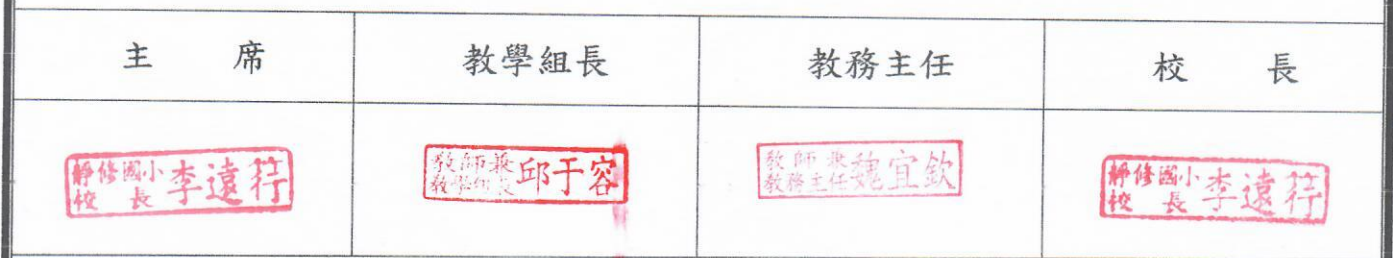 主席 教學組長 教務主任 校長
靜修國小校長 李遠行 教師兼教學組長 邱于容 教師兼教務主任 魏宜欽 靜修國小校長 李遠行